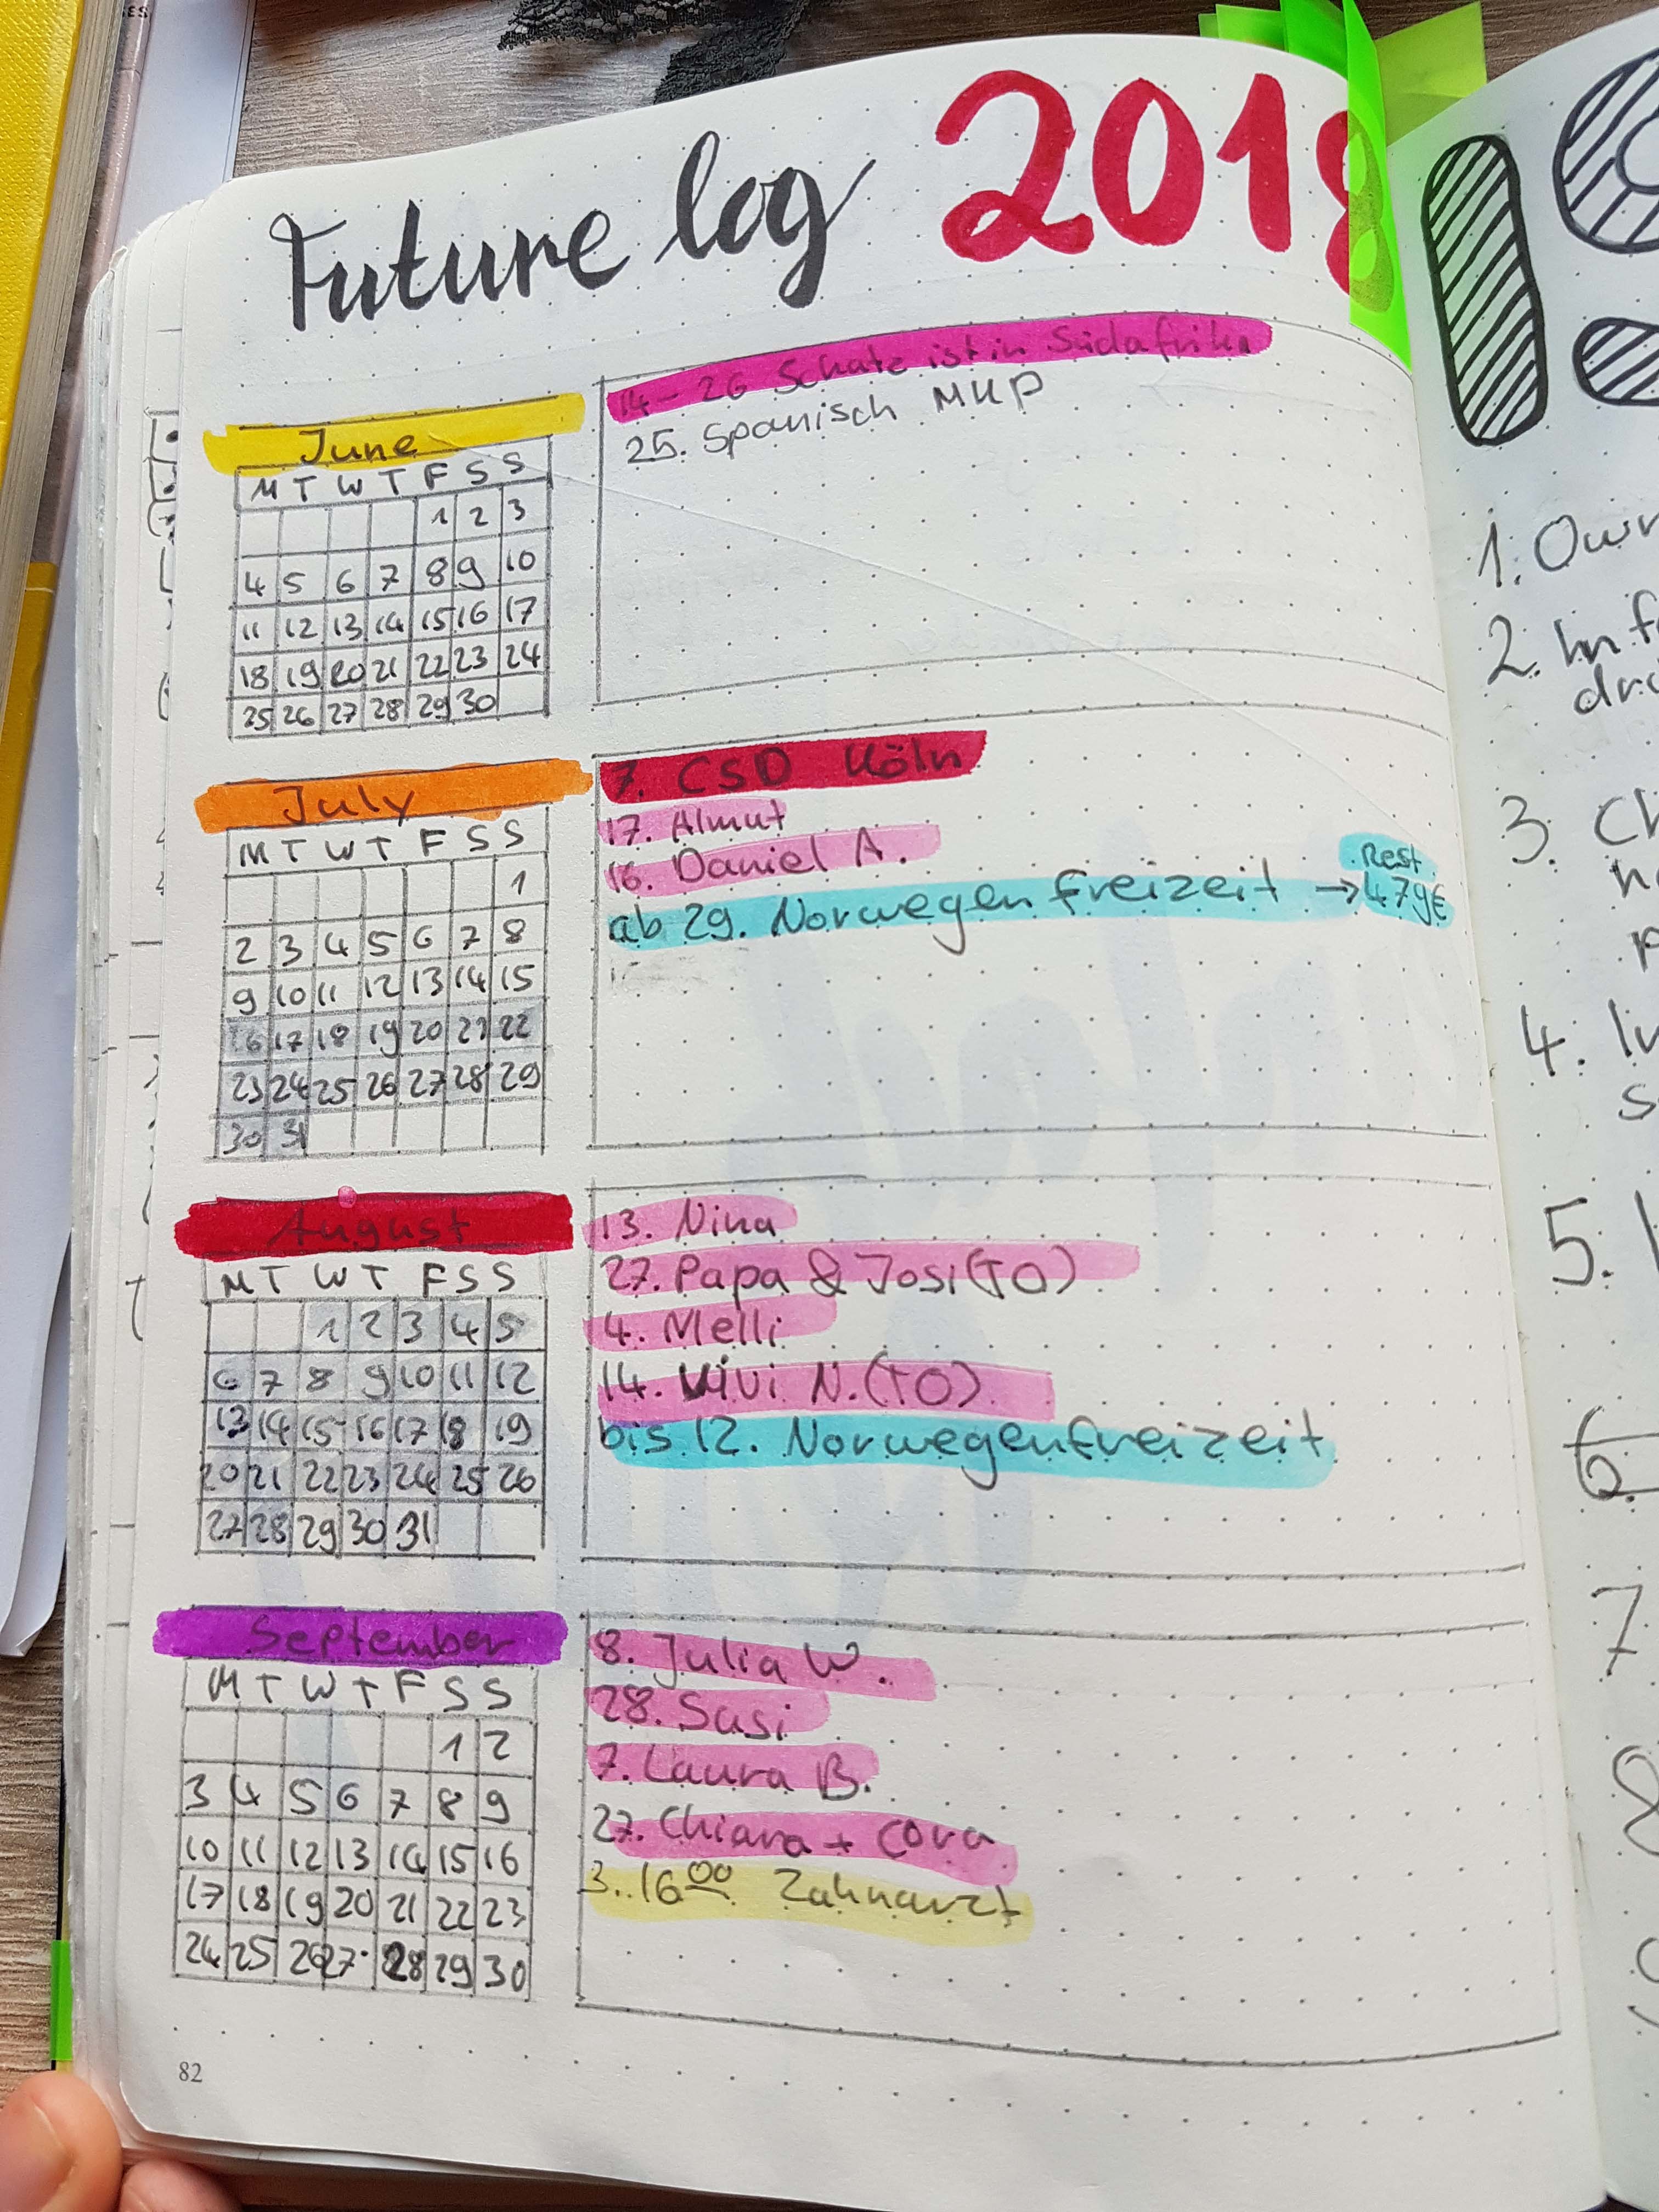 Future log 2018
14-26 Schatz ist in Südafrika
25. Spanisch MKP
June
M T W T F S S
1 2 3
4 5 6 7 8 9 10
11 12 13 14 15 16 17
18 19 20 21 22 23 24
25 26 27 28 29 30
7. CSD Köln
17. Almut
16. Daniel A.
ab 29. Norwegen freizeit → Rest 479€
July
M T W T F S S
1
2 3 4 5 6 7 8
9 10 11 12 13 14 15
16 17 18 19 20 21 22
23 24 25 26 27 28 29
30 31
13. Nina
27. Papa & Josi (TO)
4. Melli
14. Vivi N. (TO)
bis 12. Norwegenfreizeit
August
M T W T F S S
1 2 3 4 5
6 7 8 9 10 11 12
13 14 15 16 17 18 19
20 21 22 23 24 25 26
27 28 29 30 31
8. Julia W.
28. Susi
7. Laura B.
27. Chiara + Cora
3. 16⁰⁰ Zahnarzt
September
M T W T F S S
1 2
3 4 5 6 7 8 9
10 11 12 13 14 15 16
17 18 19 20 21 22 23
24 25 26 27 28 29 30
82
1.
2.
3.
4.
5.
6.
7
8